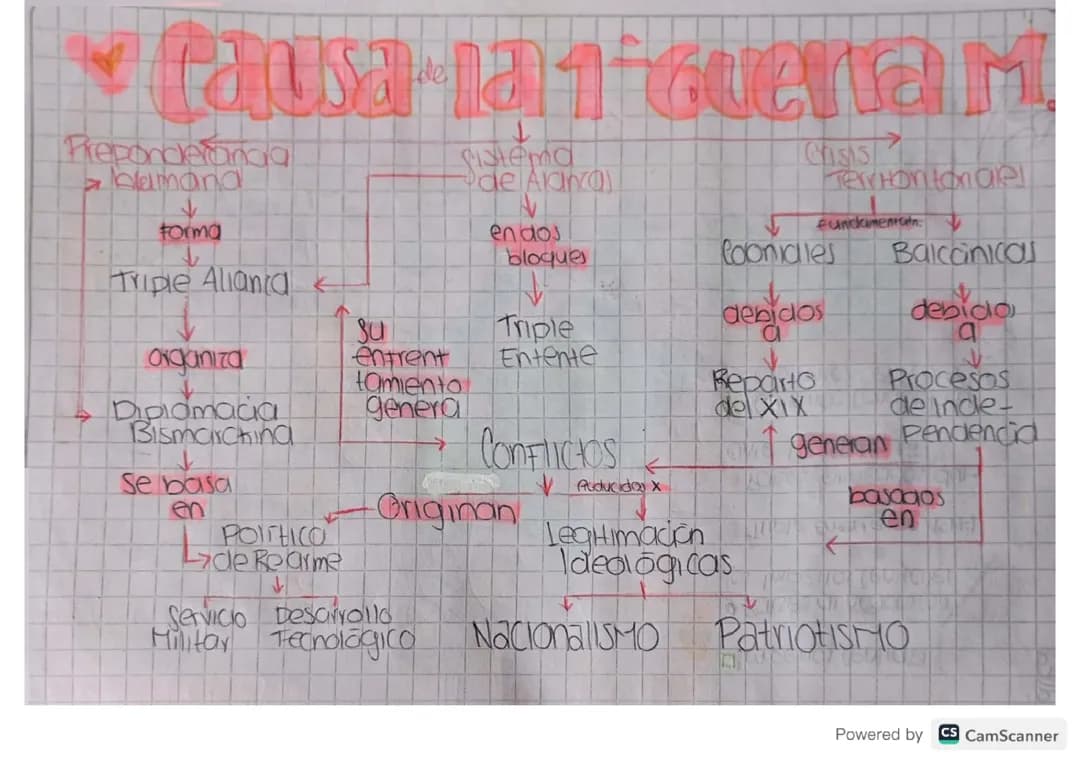 Causa de la 1ª Guerra M.
Preponderancia
Alemana
Sistema
de Alianzas
Crisis
Territoriales
forma
Triple Alianza
organiza
Diplomacia
Bismarckina
Se basa
en
Politica
de Rearme
Servicio
Militar
Desarrollo
Tecnológico
en dos
bloques
Triple
Entente
Su
enfrent
tamiento
genera
Conflictos
Originan
Legitimación
Ideológicas
Nacionalismo
Patriotismo
Cooniales
debidos
a
Reparto
del XIX
Balcánicas
debido
a
Procesos
de inde-
pendencia
generan
basados
en
Powered by CS CamScanner